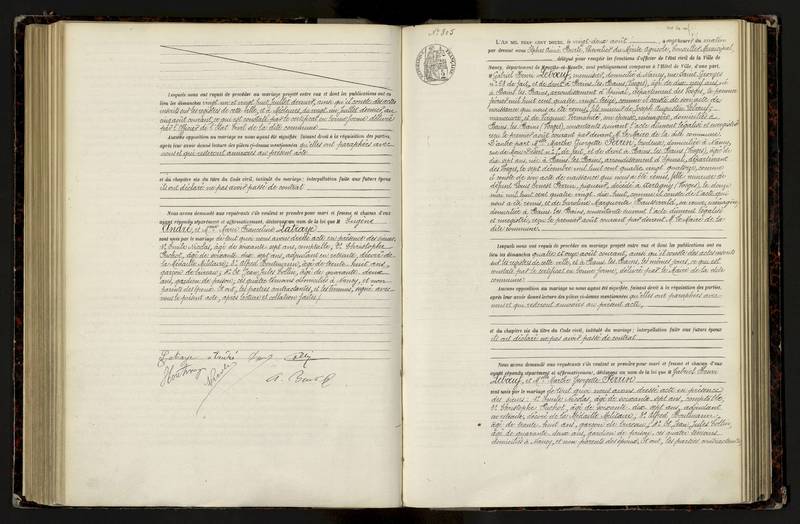 Lesquels nous ont requis de procéder au mariage projeté entre eux et dont les publications ont eu
lieu les dimanches vingt-un et vingt huit juillet dernier, ainsi qu'il conste des actes
insérés sur les registres de cette ville, et à
août courant, ce qui est constaté par le certificat en bonne forme délivré
par l'Officier de l'État Civil de la dite commune
Aucune opposition audit mariage ne nous ayant été signifiée, faisant droit à la réquisition des parties,
après leur avoir donné lecture des pièces ci-dessus mentionnées qu'elles ont paraphées avec
nous et qui resteront annexées au présent acte
et du chapitre six du titre du Code civil, intitulé du mariage ; interpellation faite aux futurs époux
ils ont déclaré ne pas avoir passé de contrat
Nous avons demandé aux requérants s'ils veulent se prendre pour mari et femme et chacun d'eux
ayant répondu séparément et affirmativement, déclarons au nom de la loi que M Eugène
André, et Mlle Marie Franceline Labaye
sont unis par le mariage de tout quoi nous avons dressé acte en présence des sieurs:
1° Emile Nicolas, âgé de soixante sept ans, comptable, 2° Christophe
Pichot, âgé de soixante dix sept ans, adjudant en retraite, décoré de
la Médaille Militaire, 3° Alfred Boulmann, âgé de trente huit ans,
garçon de bureau; 4° et Jean Jules Collin, âgé de quarante deux
ans, gardien de prison; ces quatre témoins domiciliés à Nancy, et non
parents des époux. Et ont, les parties contractantes, et les témoins, signé avec
nous le présent acte, après lecture et collation faites.
Labaye André
N° 815
L'AN MIL NEUF CENT DOUZE, le vingt-deux août, à onze heures du matin
par devant nous
délégué pour remplir les fonctions d'officier de l'État civil de la Ville de
Nancy, département de Meurthe-et-Moselle, sont publiquement comparus à l'Hôtel de Ville, d'une part,
M Gabriel Henri Leboeuf, menuisier, domicilié à Nancy, rue Saint Georges
né
à Bains les Bains, arrondissement d'Épinal, département des Vosges, le
mil huit cent quatre vingt treize, comme il conste de son acte de
naissance qui nous a été remis, fils mineur de Joseph Augustin Leboeuf,
D'autre part Mlle Marthe Georgette Perrin, brodeuse, domiciliée à Nancy,
dix sept ans, née à Bains les Bains, arrondissement d'Épinal, département
des Vosges, le sept décembre mil huit cent quatre vingt quatorze, comme
il conste de son acte de naissance qui nous a été remis, fille mineure de
défunt Louis Ernest Perrin, décédé à Martigny (Vosges), le douze
mai mil huit cent quatre vingt dix huit, comme il conste de l'acte qui
nous a été remis, et de Caroline Marguerite sa veuve, ménagère,
domiciliée à Bains les Bains, consentante suivant l'acte dûment légalisé
et enregistré, reçu le premier août courant par devant M. le Maire de la
dite commune.
Lesquels nous ont requis de procéder au mariage projeté entre eux et dont les publications ont eu
lieu les dimanches quatre et onze août courant, ainsi qu'il conste des actes insérés
sur les registres de cette ville, et à Bains les Bains, les mêmes jours, ce qui est
constaté par le certificat en bonne forme, délivré par le Maire de la dite
commune.
Aucune opposition audit mariage ne nous ayant été signifiée, faisant droit à la réquisition des parties,
après leur avoir donné lecture des pièces ci-dessus mentionnées qu'elles ont paraphées avec
nous et qui resteront annexées au présent acte.
et du chapitre six du titre du Code civil, intitulé du mariage ; interpellation faite aux futurs époux
ils ont déclaré ne pas avoir passé de contrat
Nous avons demandé aux requérants s'ils veulent se prendre pour mari et femme et chacun d'eux
ayant répondu séparément et affirmativement, déclarons au nom de la loi que M Gabriel Henri
Leboeuf, et Mlle Marthe Georgette Perrin
sont unis par le mariage de tout quoi nous avons dressé acte en présence
des sieurs: 1° Emile Nicolas, âgé de soixante sept ans, comptable,
2° Christophe Pichot, âgé de soixante dix sept ans, adjudant
en retraite, décoré de la Médaille Militaire, 3° Alfred Boulmann,
âgé de trente huit ans, garçon de bureau; 4° et Jean Jules Collin,
âgé de quarante deux ans, gardien de prison, ces quatre témoins
domiciliés à Nancy, et non parents des époux. Et ont, les parties contractantes